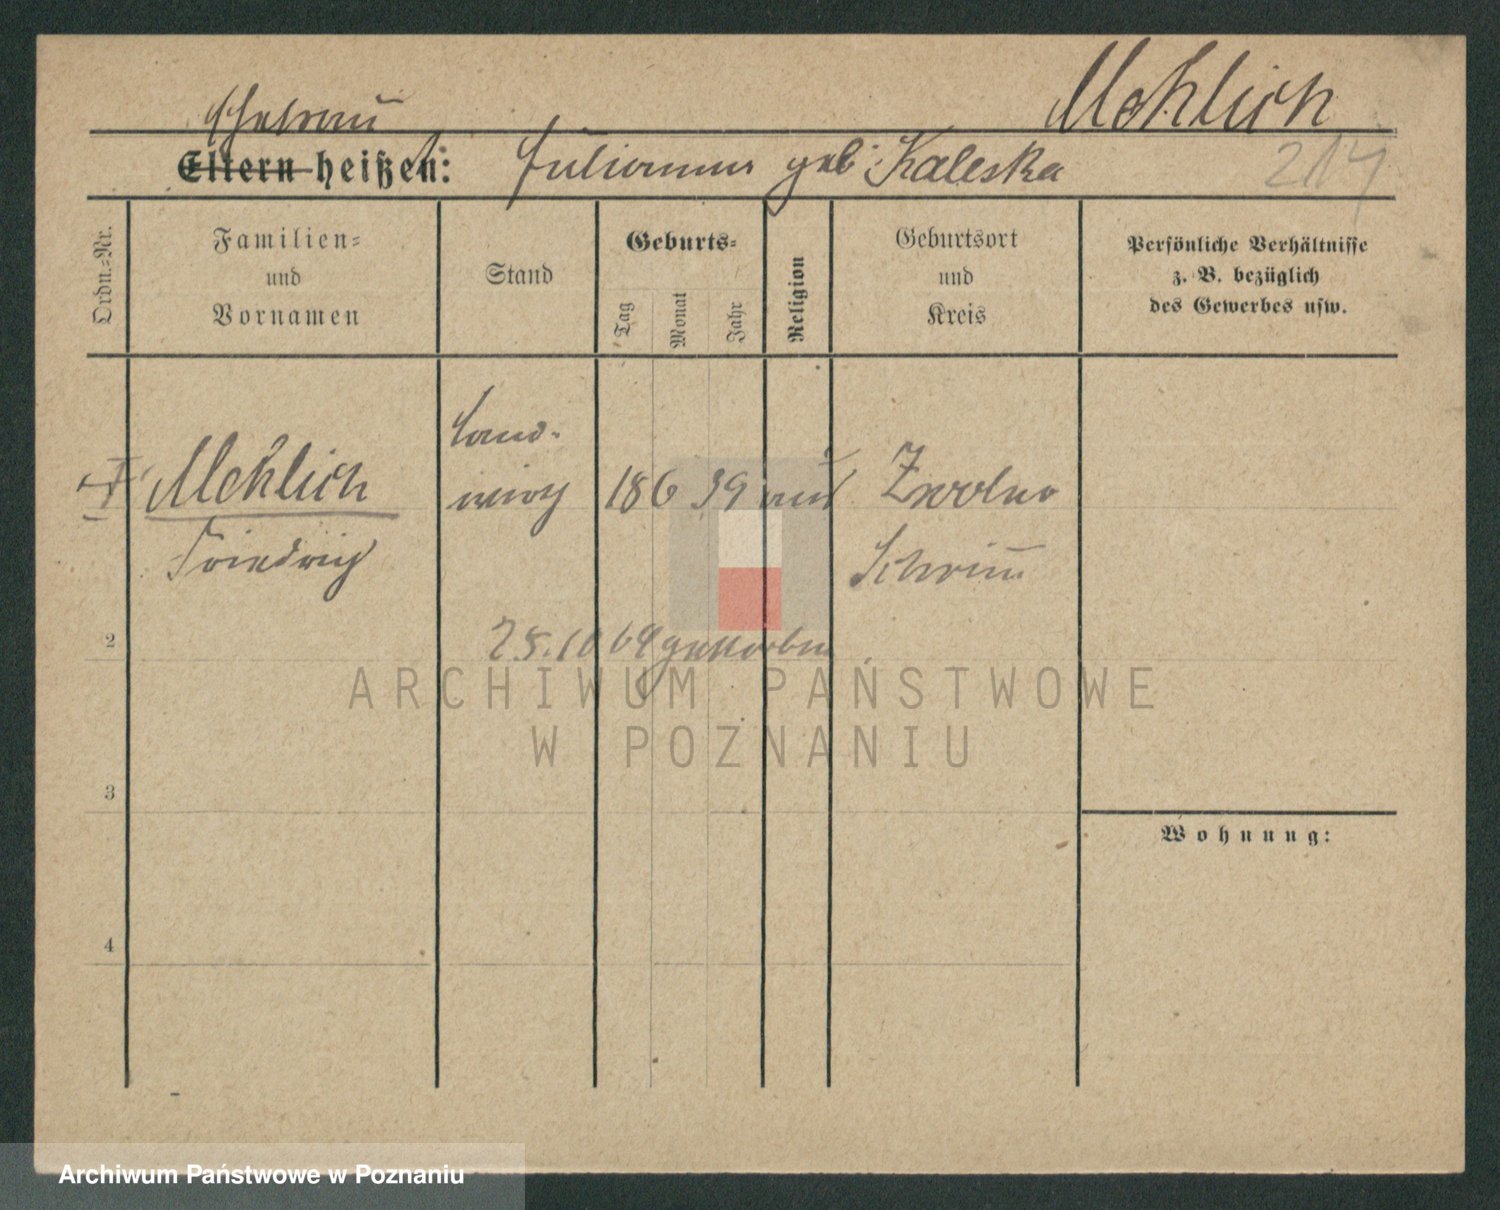 Mehlich
Ehefrau
Eltern heißen: Julianna geb. Kaleska
214
Ordn.-Nr.
Familien-
und
Vornamen
Stand
Geburts-
Tag
Monat
Jahr
Religion
Geburtsort
und
Kreis
Persönliche Verhältnisse
z. B. bezüglich
des Gewerbes usw.
Land-
Mehlich
wirth
18 6 39
Friedrich
Schrimm
25.10 69 gestorben
2
3
4
Wohnung:
ARCHIWUM PAŃSTWOWE
W POZNANIU
Archiwum Państwowe w Poznaniu